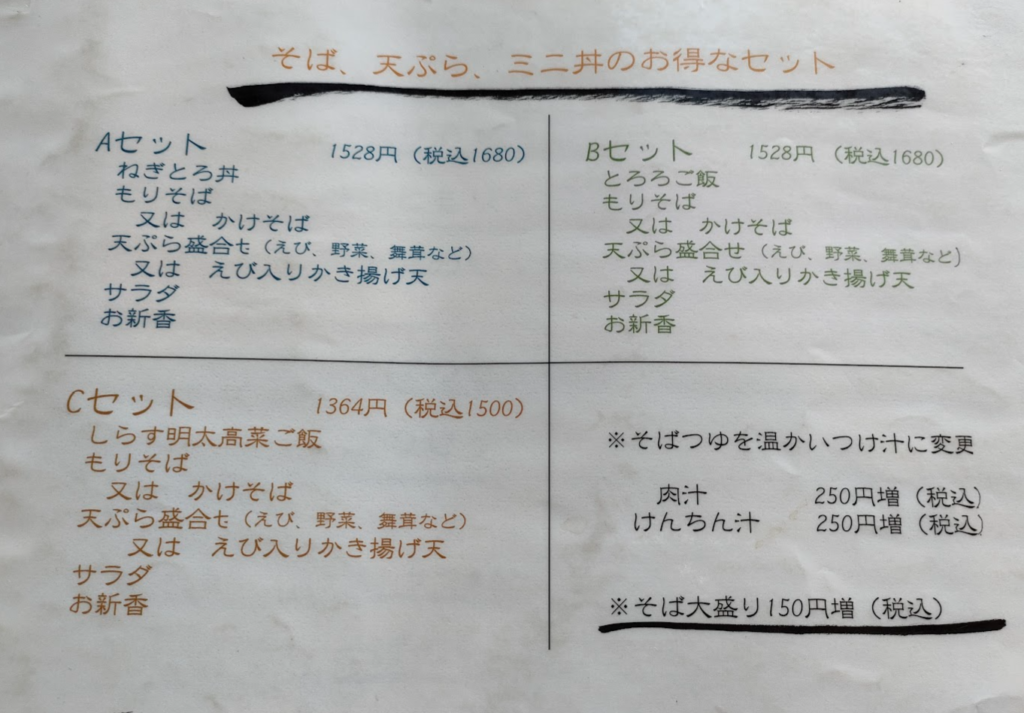 そば、天ぷら、ミニ丼のお得なセット
Aセット 1528円（税込1680）
ねぎとろ丼
もりそば
又は かけそば
天ぷら盛合せ（えび、野菜、舞茸など）
又は えび入りかき揚げ天
サラダ
お新香
Bセット 1528円（税込1680）
とろろご飯
もりそば
又は かけそば
天ぷら盛合せ（えび、野菜、舞茸など）
又は えび入りかき揚げ天
サラダ
お新香
Cセット 1364円（税込1500）
しらす明太高菜ご飯
もりそば
又は かけそば
天ぷら盛合せ（えび、野菜、舞茸など）
又は えび入りかき揚げ天
サラダ
お新香
※そばつゆを温かいつけ汁に変更
肉汁 250円増（税込）
けんちん汁 250円増（税込）
※そば大盛り150円増（税込）